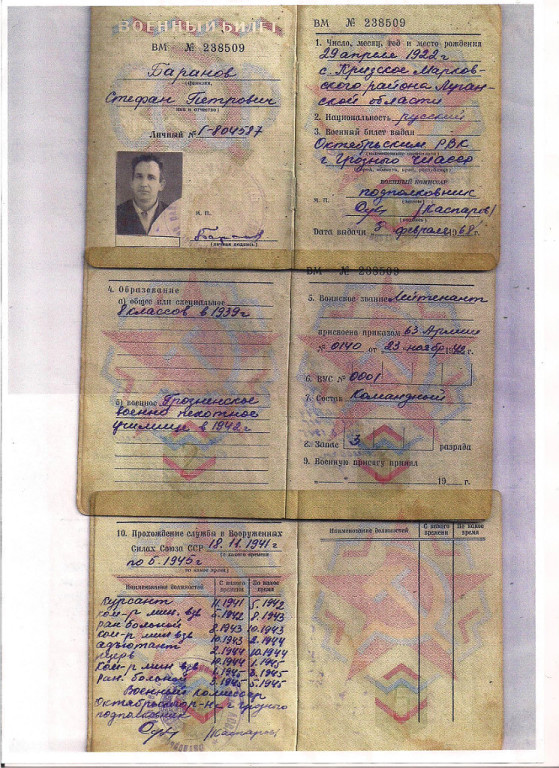 ВОЕННЫЙ БИЛЕТ
ВМ № 238509
Баранов
(фамилия,
Стефан Петрович
имя и отчество)
Личный № Г-804587
м. п.
(личная подпись)
ВМ № 238509
1. Число, месяц, год и место рождения
29 апреля 1922 г
с. Кризское Марков-
ского района Луган-
ской области
2. Национальность русский
3. Военный билет выдан
Октябрьским РВК
г Грозного ЧИАССР
военный комиссар
подполковник
м. п.
/Каспаров/
(подпись)
Дата выдачи 8 февраля 1968 г.
4. Образование
а) общее или специальное
8 классов в 1939 г
б) военное Грозненское
военно пехотное
училище в 1942 г
ВМ № 238509
5. Воинское звание лейтенант
присвоено приказом 63 Армии
№ 0140 от 23 ноябр 1942 г.
6. ВУС № 0001
7. Состав Командный
8. Запас 3 разряда
9. Военную присягу принял
19 г.
10. Прохождение службы в Вооруженных
Силах Союза ССР 18.11.1941 г
(с какого времени
по 5.1945 г
по какое время)
Наименование должностей С какого времени По какое время
Курсант 11.1941 5.1942
ком-р мин. взв 5.1942 8.1943
ран больной 8.1943 10.1943
ком-р мин взв 10.1943 2.1944
адъютант 2.1944 10.1944
ком-р мин взв 10.1944 1.1945
ран. больной 1.1945 3.1945
3.1945 5.1945
Военный комиссар
Октябрьского р-на г Грозного
подполковник
/Каспаров/
Наименование должностей С какого времени По какое время